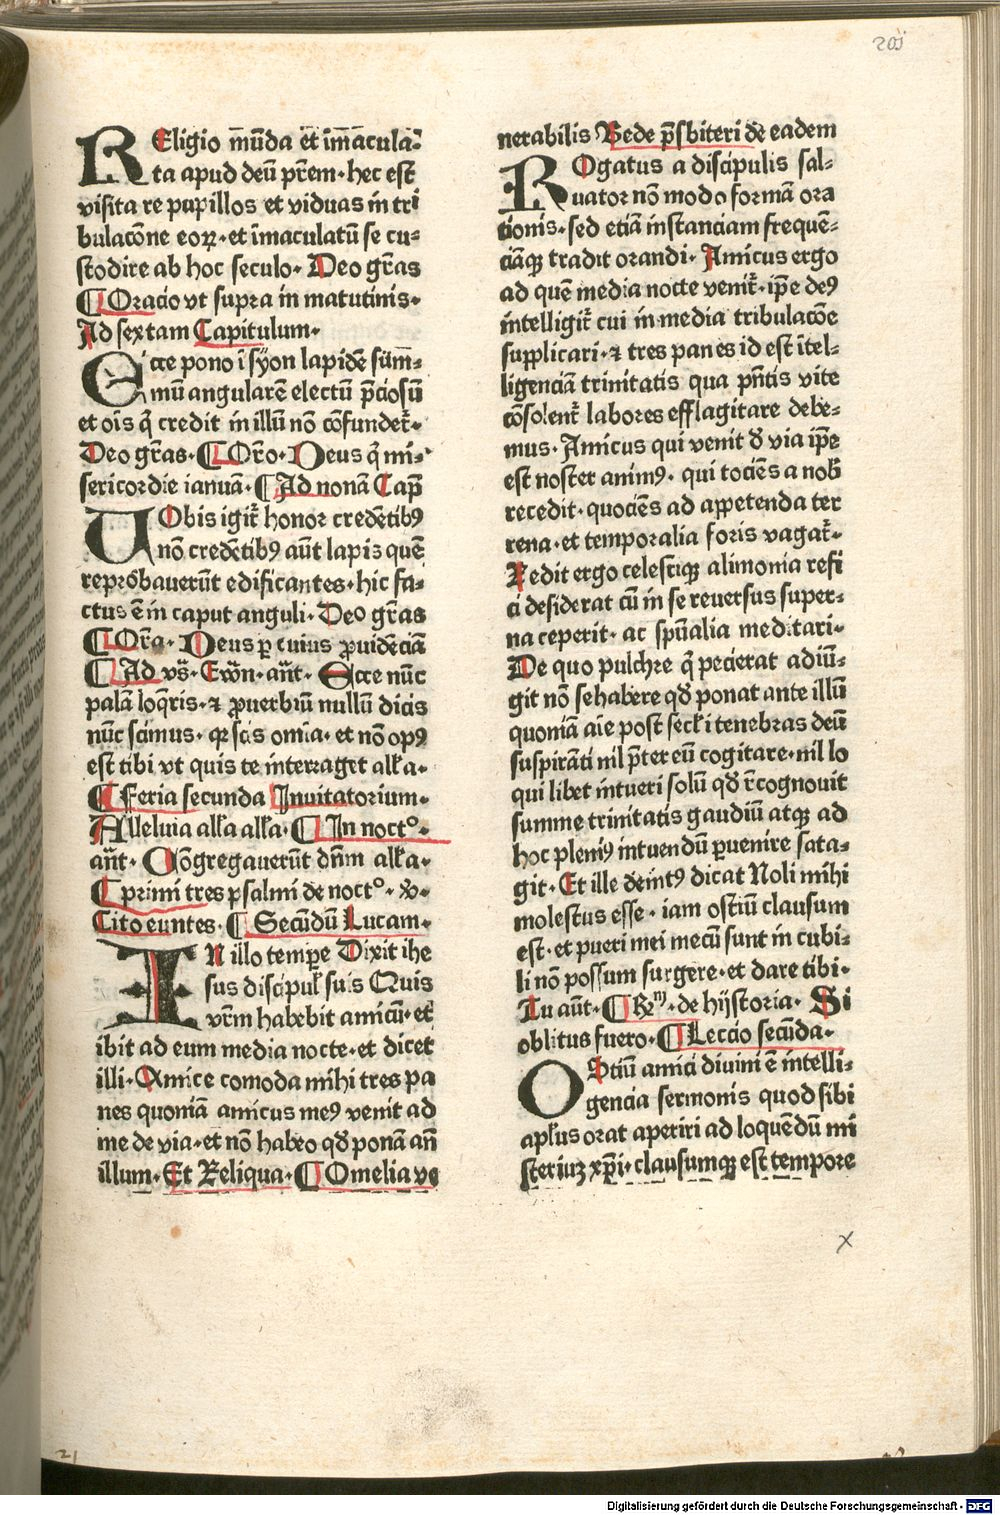 201
REligio mūda et īmacula-
ta apud deū p̄rem·hec est
visita re pupillos et viduas in tri
bulacōne eoꝝ·et īmaculatū se cu-
stodire ab hoc seculo·Deo gr̄as
¶Oracio vt supra in matutinis·
Ad sextam Capitulum·
Ecce pono ī syon lapidē sūm-
mū angularē electū p̄ciosū
et oīs q̄ credit in illū nō cōfundet̄·
Deo gr̄as·¶Or̄o·Deus q̄ mi-
sericordie ianuā·¶Ad nonā Cap̄
Uobis igit̄ honor credētibꝰ
nō credētibꝰ aūt lapis quē
reprobauerūt edificantes·hic fa-
ctus ē in caput anguli·Deo gr̄as
¶Or̄a·Deus ꝑ cuius ꝓuidēciā
¶Ad vs̄·Ewn̄·an̄t·Ecce nūc
palā loq̄ris·⁊ ꝓuerbiū nullū dicis
nūc scimus·qꝛ scis om̄ia·et nō opꝰ
est tibi vt quis te interraget all̄a·
¶Feria secunda Inuitatorium·
Alleluia all̄a all̄a·¶In noctᵒ·
an̄t·Cōgregauerūt dn̄m all̄a·
¶primi tres psalmi de noctᵒ·℣·
Cito euntes·¶Secūdū Lucam·
IN illo tempē Dixit ihe
sus discipul̄ suis Quis
vr̄m habebit amicū·et
ibit ad eum media nocte·et dicet
illi·Amice comoda mihi tres pa
nes quoniā amicus meꝰ venit ad
me de via·et nō habeo qd̄ ponā an̄
illum·Et Reliqua·¶Omelia ve
nerabilis Bede p̄sbiteri de eadem
ROgatus a discipulis sal-
uator nō modo formā ora
tionis·sed etiā instanciam frequē-
ciāqꝫ tradit orandi·Amicus ergo
ad quē media nocte venit̄·ip̄e deꝰ
intelligit̄ cui in media tribulacōe
supplicari·⁊ tres panes id est ītel-
ligenciā trinitatis qua p̄ntis vite
cōsolent̄ labores efflagitare debe-
mus·Amicus qui venit d̄ via ip̄e
est noster animꝰ·qui tociēs a nob̄
recedit·quociēs ad appetenda ter
rena·et temporalia foris vagat̄·
Redit ergo celestiqꝫ alimonia refi
ci desiderat cū in se reuersus super-
na ceperit·ac sp̄ualia meditari·
De quo pulchre q̄ pecierat adiū-
git nō se habere qd̄ ponat ante illū
quoniā aīe post secl̄i tenebras deū
suspirāti nil p̄ter eū cogitare·nil lo
qui libet intueri solū qd̄ r̄cognouit
summe trinitatis gaudiū atqꝫ ad
hoc pleniꝰ intuendū ꝑuenire sata-
git·Et ille deintꝰ dicat Noli mihi
molestus esse·iam ostiū clausum
est·et pueri mei mecū sunt in cubi-
li nō possum surgere·et dare tibi·
Tu aūt·¶de hijstoria·Si
oblitus fuero·¶Leccio secūda·
OStiū amici diuini ē intelli-
gencia sermonis quod sibi
apl̄us orat aperiri ad loquēdū mi
steriuꝫ xp̄i·clausumqꝫ est tempore
x
21
Digitalisierung gefördert durch die Deutsche Forschungsgemeinschaft - DFG